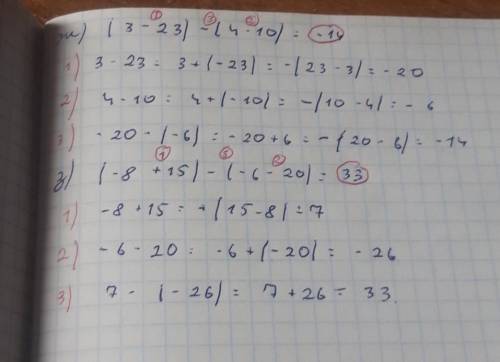 ж) (3 - 23) - (4 - 10) = -14
1) 3 - 23 = 3 + (-23) = -(23 - 3) = -20
2) 4 - 10 = 4 + (-10) = -(10 - 4) = - 6
3) -20 - (-6) = -20 + 6 = -(20 - 6) = -14
з) (-8 + 15) - (-6 - 20) = 33
1) -8 + 15 = +(15 - 8) = 7
2) -6 - 20 = -6 + (-20) = - 26
3) 7 - (-26) = 7 + 26 = 33.